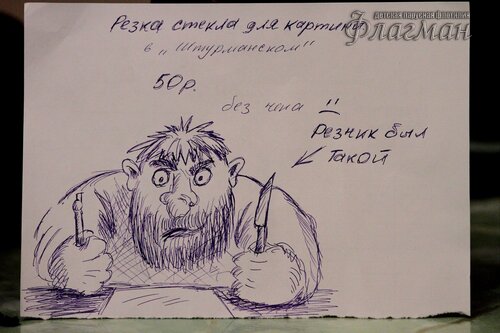 Резка стекла для картины
в "Штурманском"
50р.
без чека :(
Резчик был
такой
детская парусная флотилия
Флагман